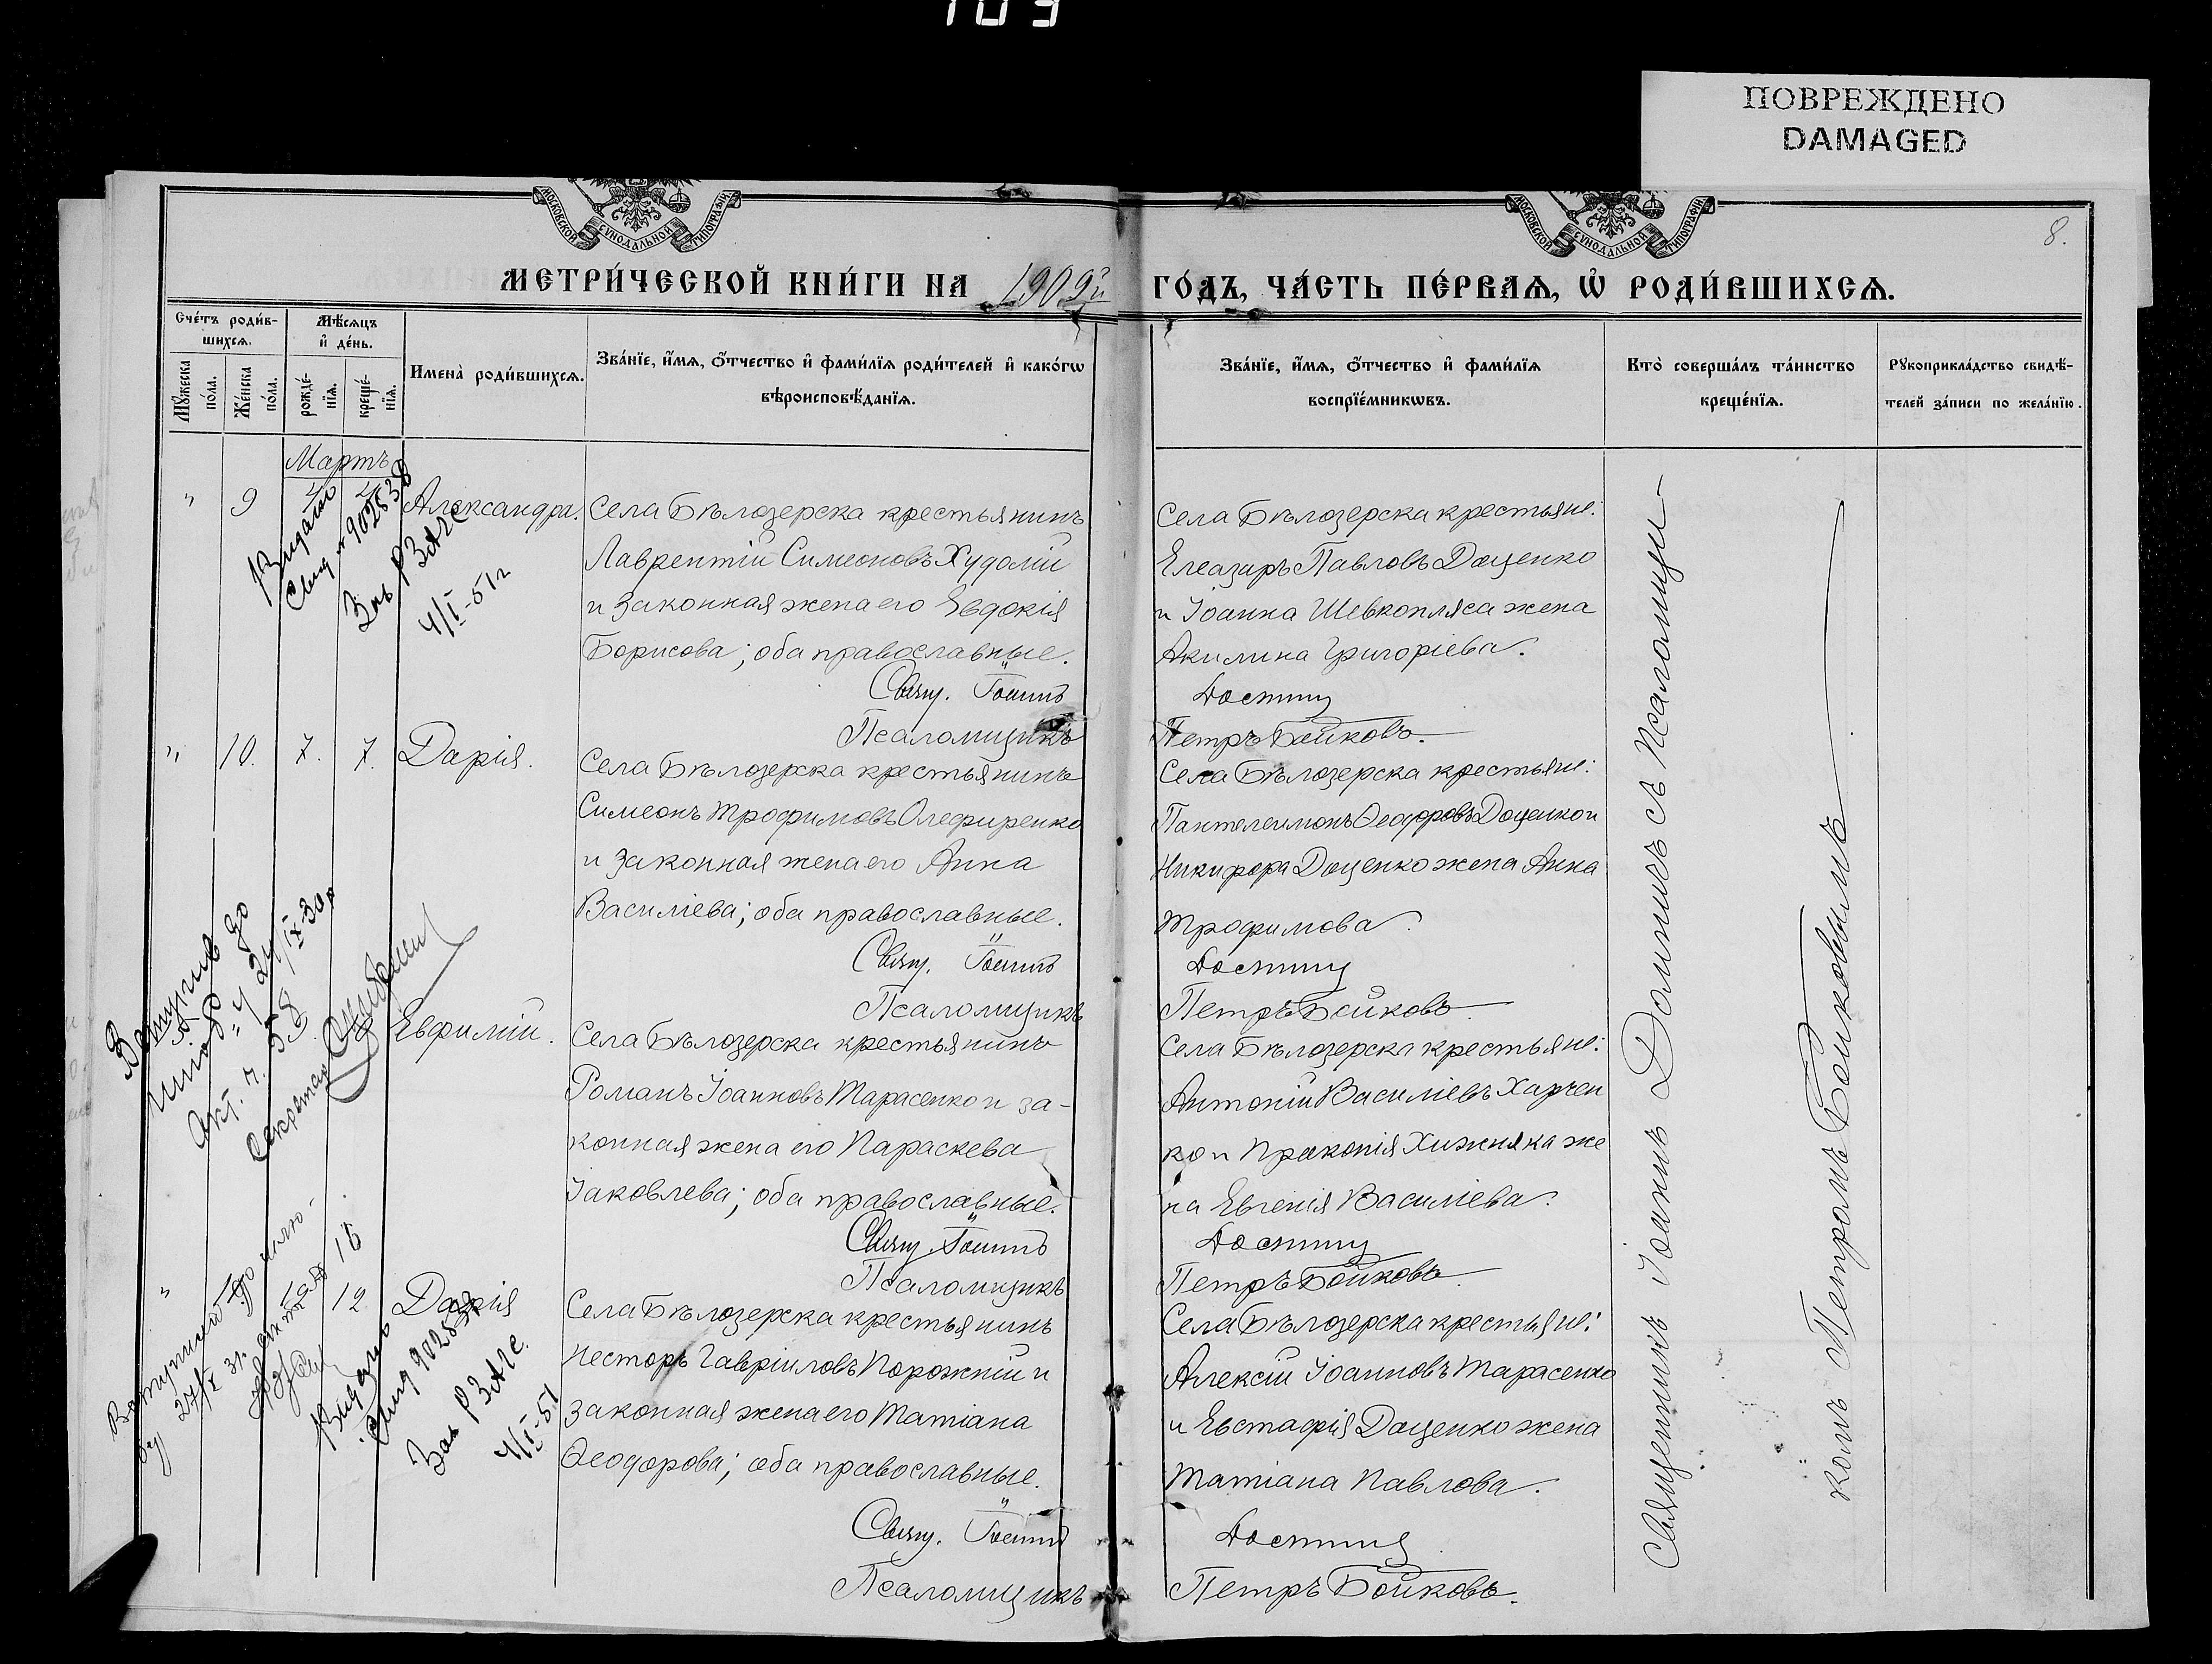 103
ПОВРЕЖДЕНО
DAMAGED
МОСКОВСКОЙ СУНОДАЛЬНОЙ ТИПОГРАФІИ
МОСКОВСКОЙ СУНОДАЛЬНОЙ ТИПОГРАФІИ
8.
МЕТРИ́ЧЕСКОЙ КНИ́ГИ НА 1909й ГО́ДЪ, ЧА́СТЬ ПЕ́РВАѦ, Ѡ҆ РОДИ́ВШИХСѦ.
Сче́тъ роди́в-
шихсѧ.
Мꙋ́жеска по́ла.
Же́нска по́ла.
Мѣ́сѧцъ
и҆ де́нь.
рожде́-
нїѧ.
креще́-
нїѧ.
Имена̀ роди́вшихсѧ.
Зва́нїе, и҆́мѧ, ѻ҆́тчество и҆ фами́лїѧ роди́телей и҆ како́гѡ
вѣроисповѣ́данїѧ.
Зва́нїе, и҆́мѧ, ѻ҆́тчество и҆ фами́лїѧ
воспрїе́мникѡвъ.
Кто̀ соверша́лъ та́инство
креще́нїѧ.
Рꙋкоприкла́дство свидѣ́-
телей за́писи по жела́нїю.
Мартъ
" 9 Александра.
Села Бѣлозерска крестьянинъ
Лаврентій Симеоновъ Худолій
и законная жена его Евдокія
Борисова; оба православные.
Свящ. Іоаннъ
Псаломщикъ
Села Бѣлозерска крестьяне:
Елеазаръ Павловъ Доценко
и Іоанна Шевкопляса жена
Акилина Григоріева.
Петръ Бойковъ.
Свид 902538
Зав РЗАГС
4/I-51г
" 10. 7. 7. Дарія.
Села Бѣлозерска крестьянинъ
Симеонъ Трофимовъ Олефиренко
и законная жена его Анна
Василіева; оба православные.
Свящ. Іоаннъ
Псаломщикъ
Села Бѣлозерска крестьяне:
Пантелеимонъ Ѳеодоровъ Доценко и
Никифора Доценко жена Анна
Трофимова.
Петръ Бойковъ.
24/IX-30р
Секретар
Евфимій.
Села Бѣлозерска крестьянинъ
Романъ Іоанновъ Тарасенко и за-
конная жена его Параскева
Іаковлева; оба православные.
Свящ. Іоаннъ
Псаломщикъ
Села Бѣлозерска крестьяне:
Антоній Василіевъ Харчен
ко и Прокопія Хижняка же
на Евгенія Василіева.
Петръ Бойковъ.
" 12 Дарія
Села Бѣлозерска крестьянинъ
Несторъ Гавріиловъ Порожній и
законная жена его Татіана
Ѳеодорова; оба православные.
Свящ. Іоаннъ
Псаломщикъ
Села Бѣлозерска крестьяне:
Алексій Іоанновъ Тарасенко
и Евстафія Доценко жена
Татіана Павлова.
Петръ Бойковъ.
Свид 902537
Зав РЗАГС.
4/I-51
Священникъ Іоаннъ с Псаломщи-
комъ Петромъ Бойковымъ